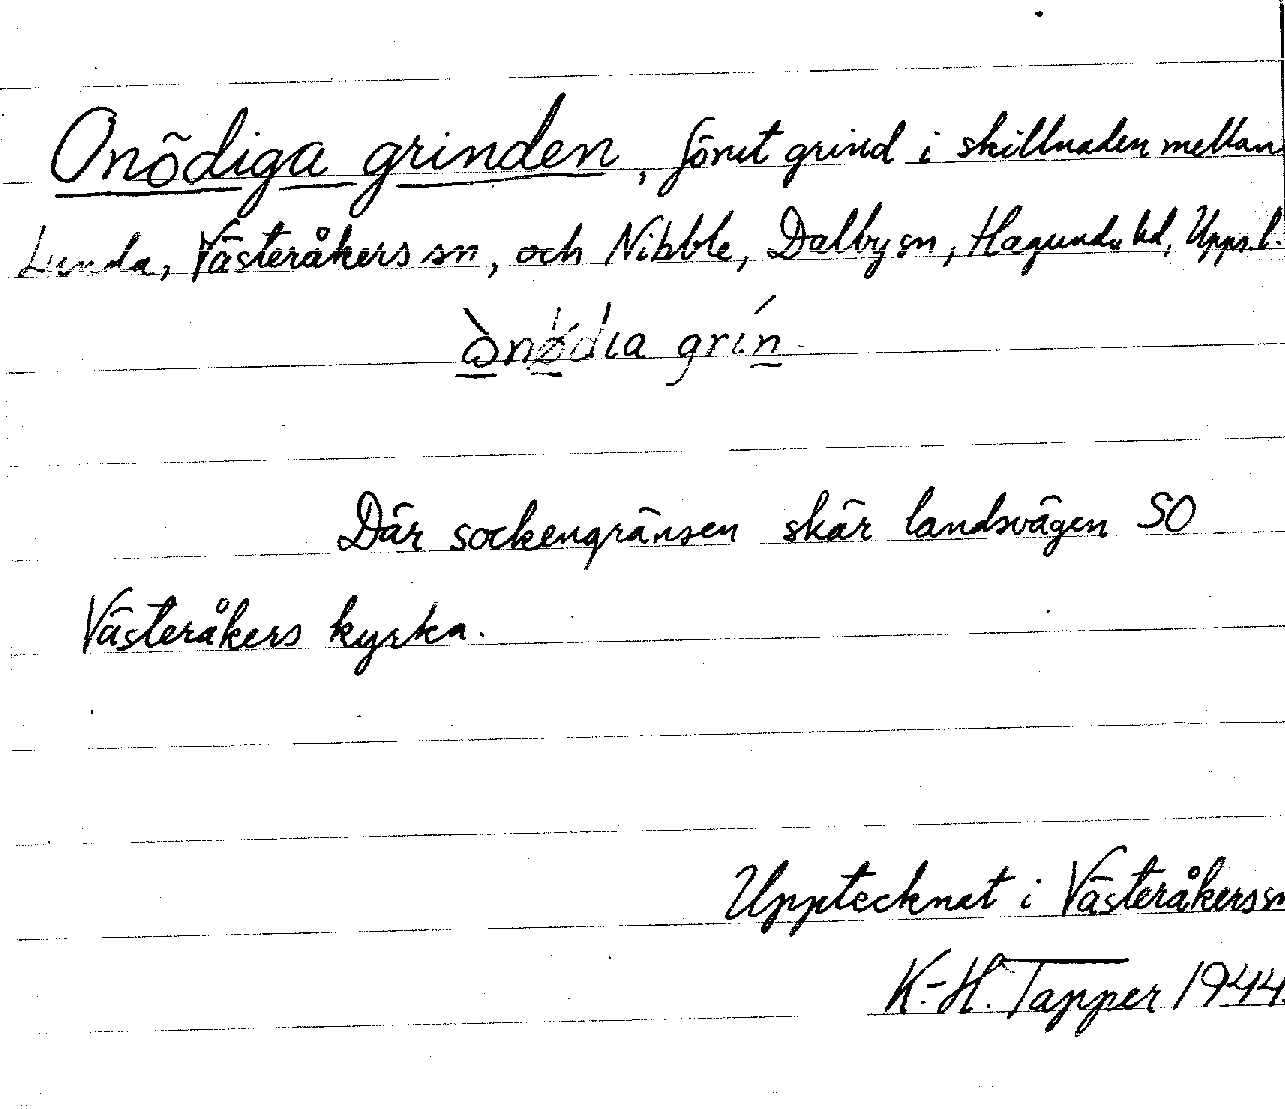 Onödiga grinden, förut grind i skillnaden mellan
Lunda, Västeråkers sn, och Nibble, Dalby sn, Hagunda hd, Upps. l.
ònǿdia grín.
Där sockengränsen skär landsvägen SO
Västeråkers kyrka.
Upptecknat i Västeråkers sn
K.-H. Tapper 1944.